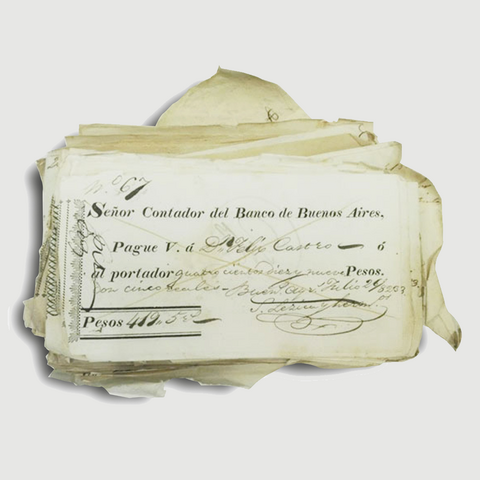 No 67
Señor Contador del Banco de Buenos Aires,
Pague V. á Dn Felix Castro ó
al portador quatrocientos diez y nueve Pesos.
con cinco reales Buens Ays Julio 29/
Pesos 419 „ 5 rs